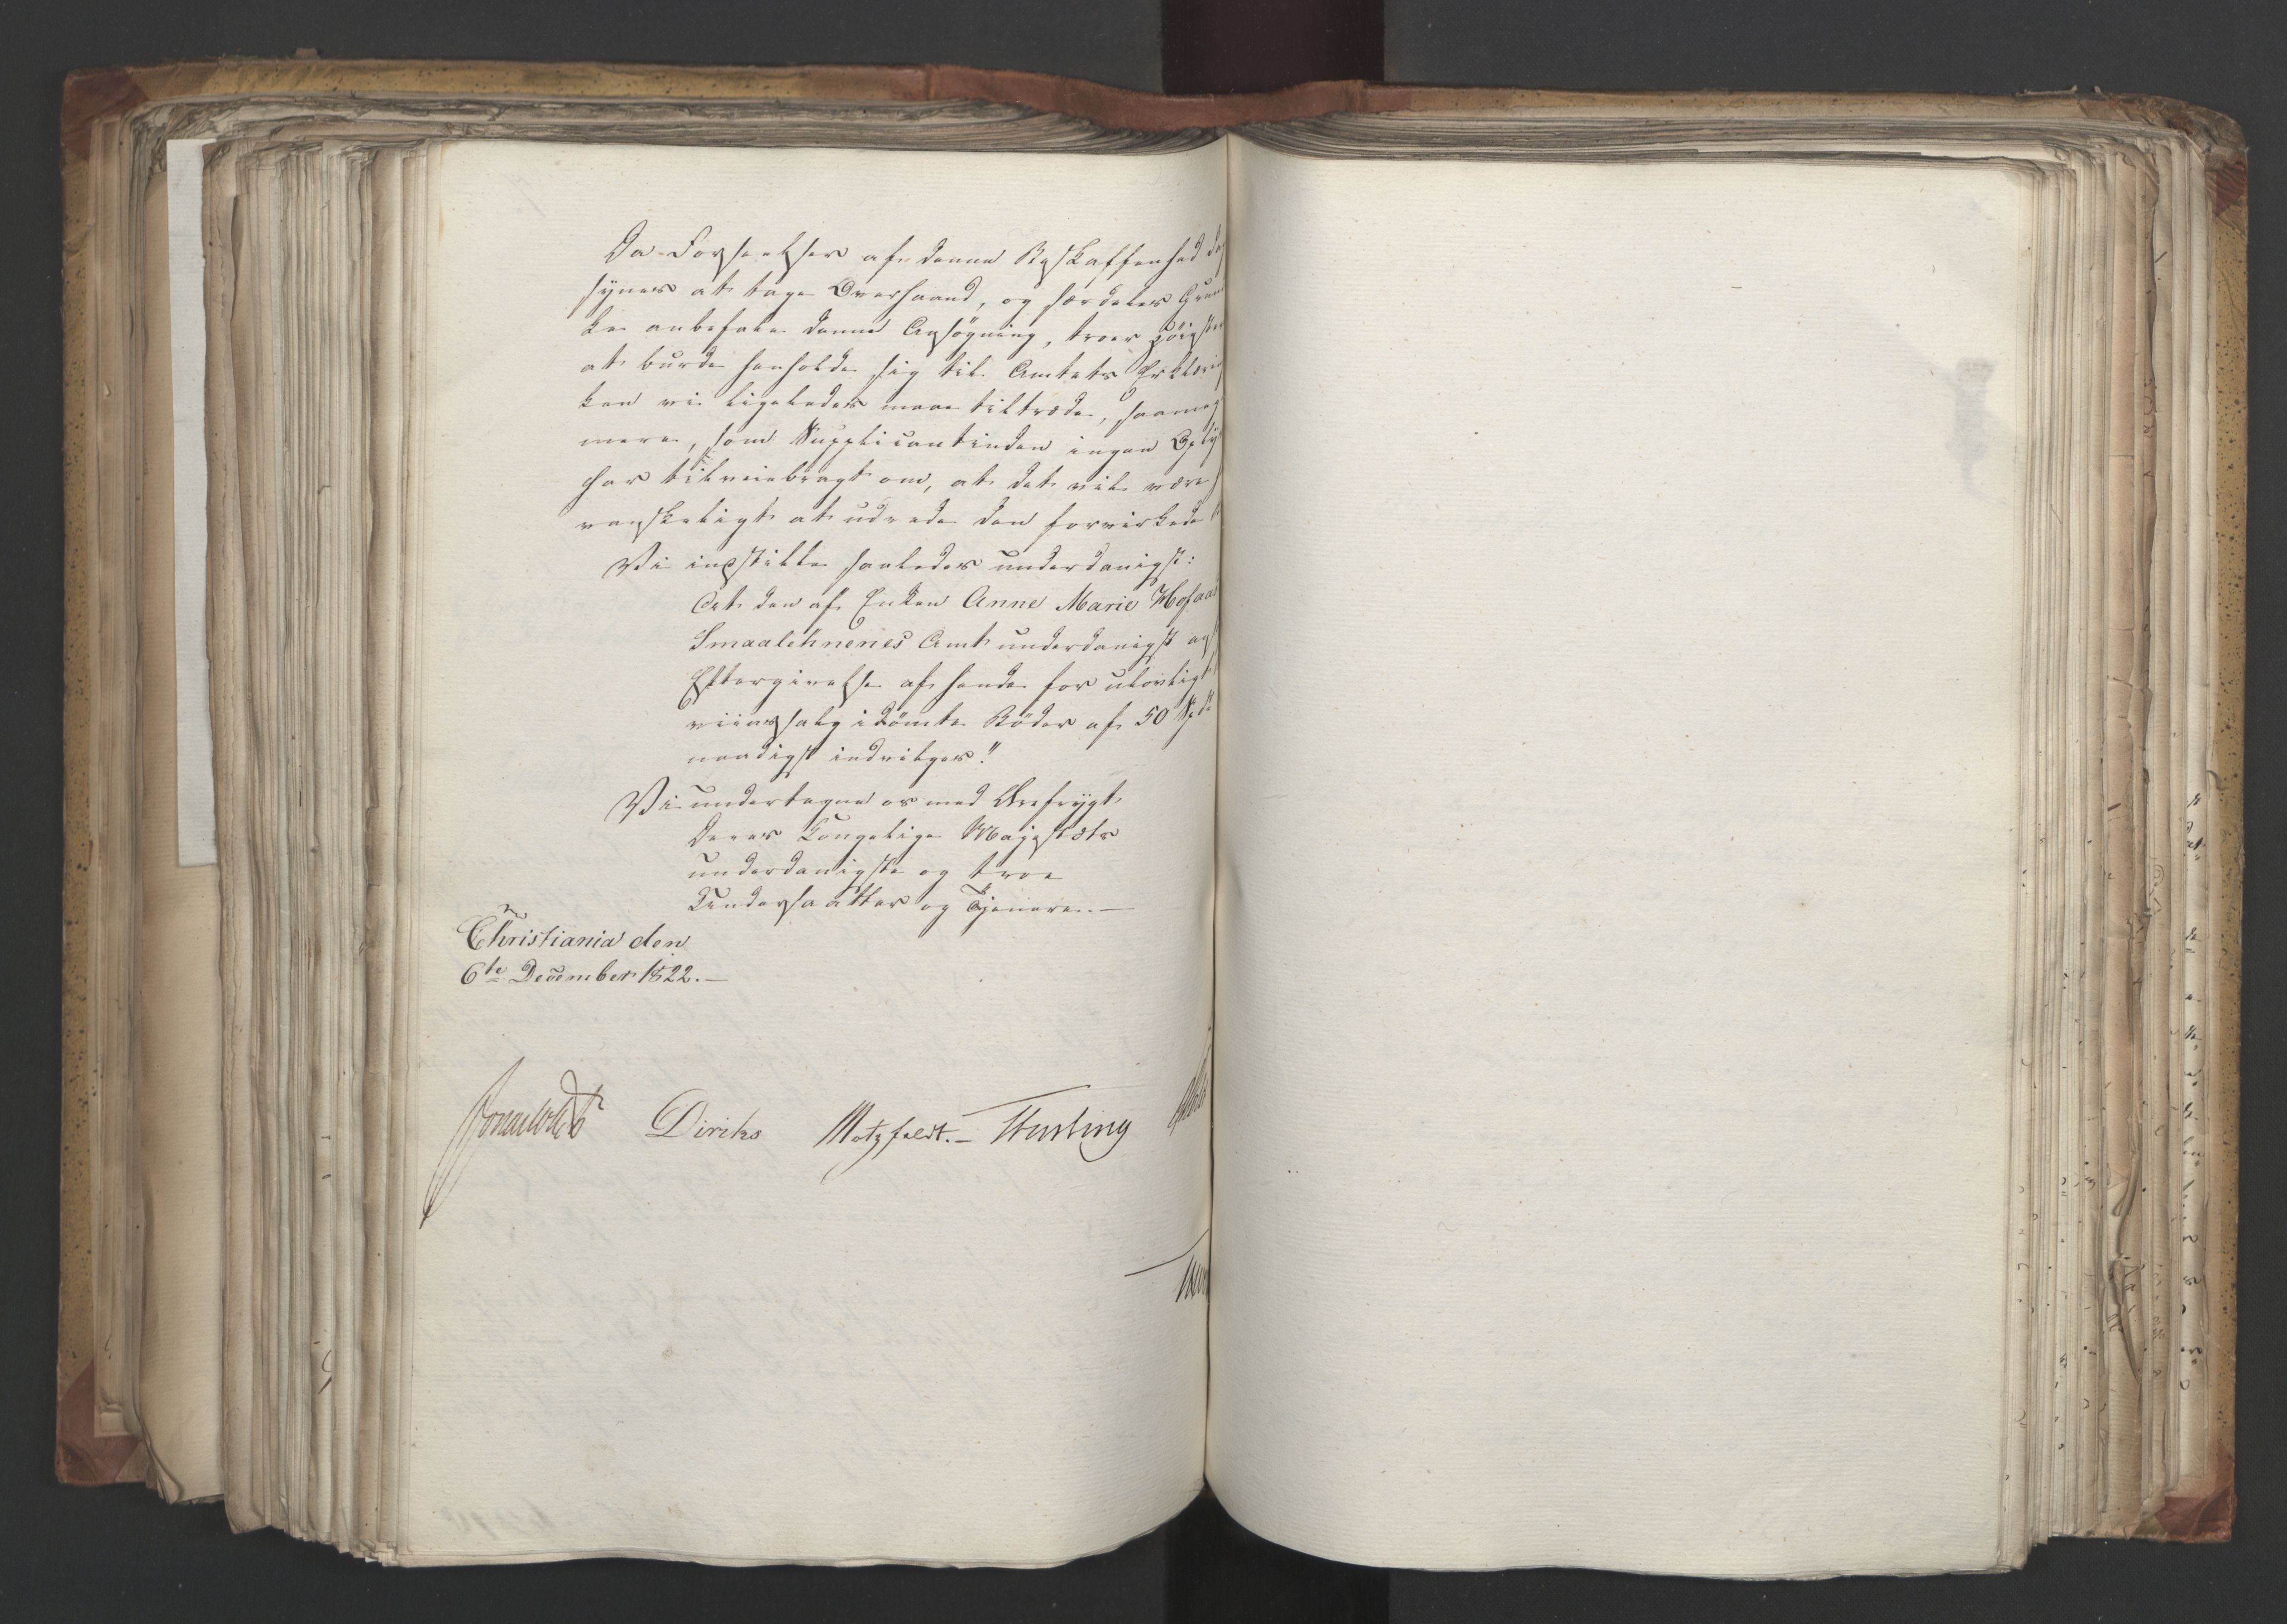 Da Forseelser af denne Beskaffenhed
synes at tage Overhaand, og særdeles
kan anbefale denne Ansøgning, troer
at burde henholde sig til Amtets
ken vi ligeledes maae tiltræde,
mere, som Supplicantinden ingen
har tilveiebragt om, at det vil være
vanskeligt at udrede den forvirkede
Vi indstille saaledes underdanigst:
At den af Enken Anne Marie
Smaalehnenes Amt underdanigst
Eftergivelse af hende for ulovligt
viinssalg idømte Bøder af 50
naadigst indvilges!"
Vi undertegne os med Ærefrygt
Deres Kongelige Majestæts
underdanigste og troe
Undersaatter og Tjenere.—
Christiania den
6te December 1822.—
Diriks Motzfeldt.—